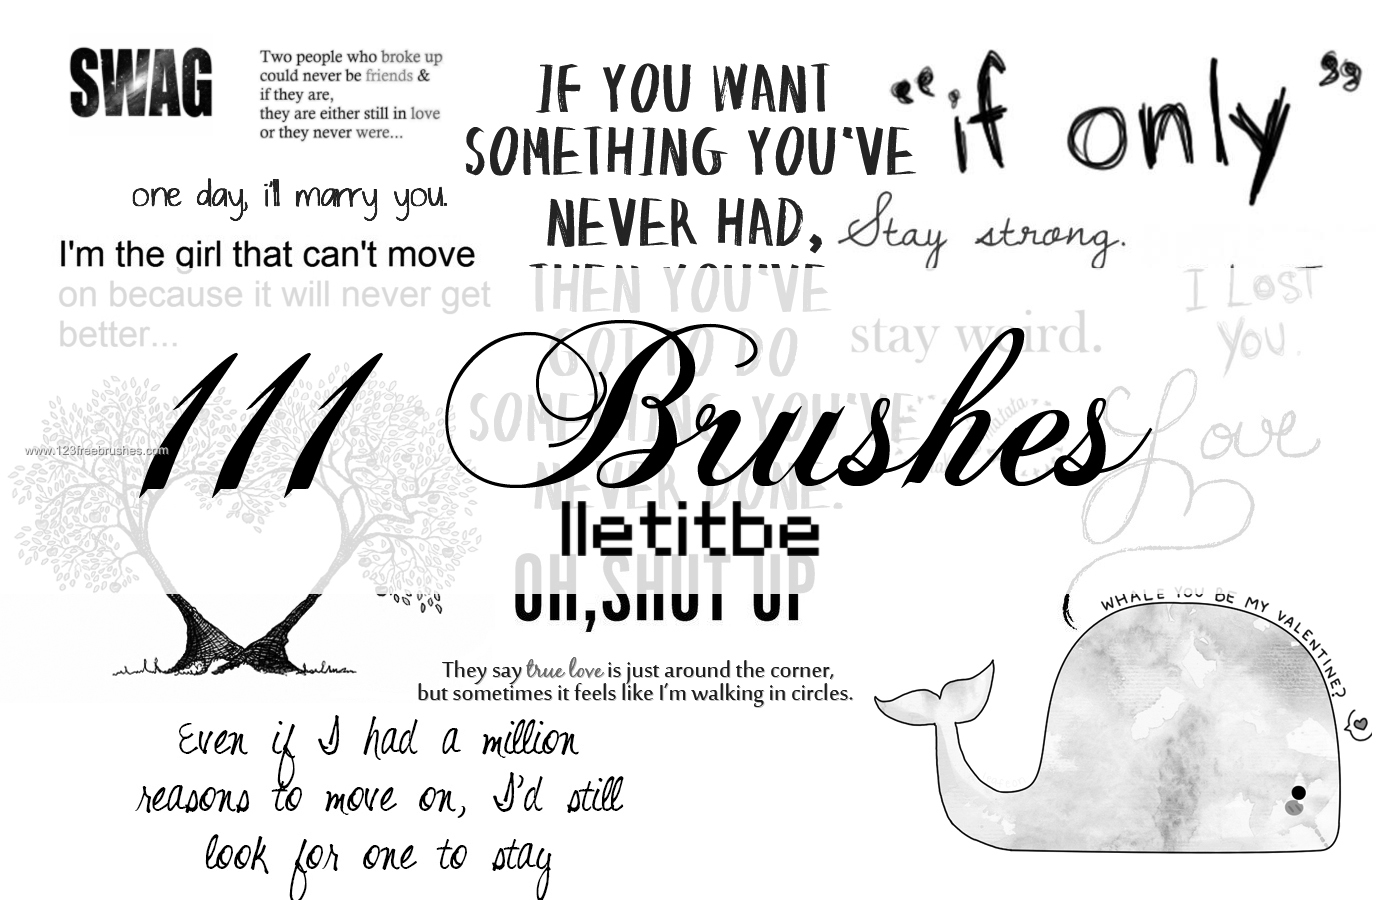 SWAG
Two people who broke up
could never be friends &
if they are,
they are either still in love
or they never were...
one day, i'll marry you.
I'm the girl that can't move
on because it will never get
better...
IF YOU WANT
SOMETHING YOU'VE
NEVER HAD,
THEN YOU'VE
GOT TO DO
SOMETHING YOU'VE
NEVER DONE.
“if only”
Stay strong.
I LOST
YOU.
stay weird.
Love
111 Brushes
www.123freebrushes.com
lletitbe
OH,SHUT UP
They say true love is just around the corner,
but sometimes it feels like I'm walking in circles.
WHALE YOU BE MY VALENTINE?
Even if I had a million
reasons to move on, I'd still
look for one to stay